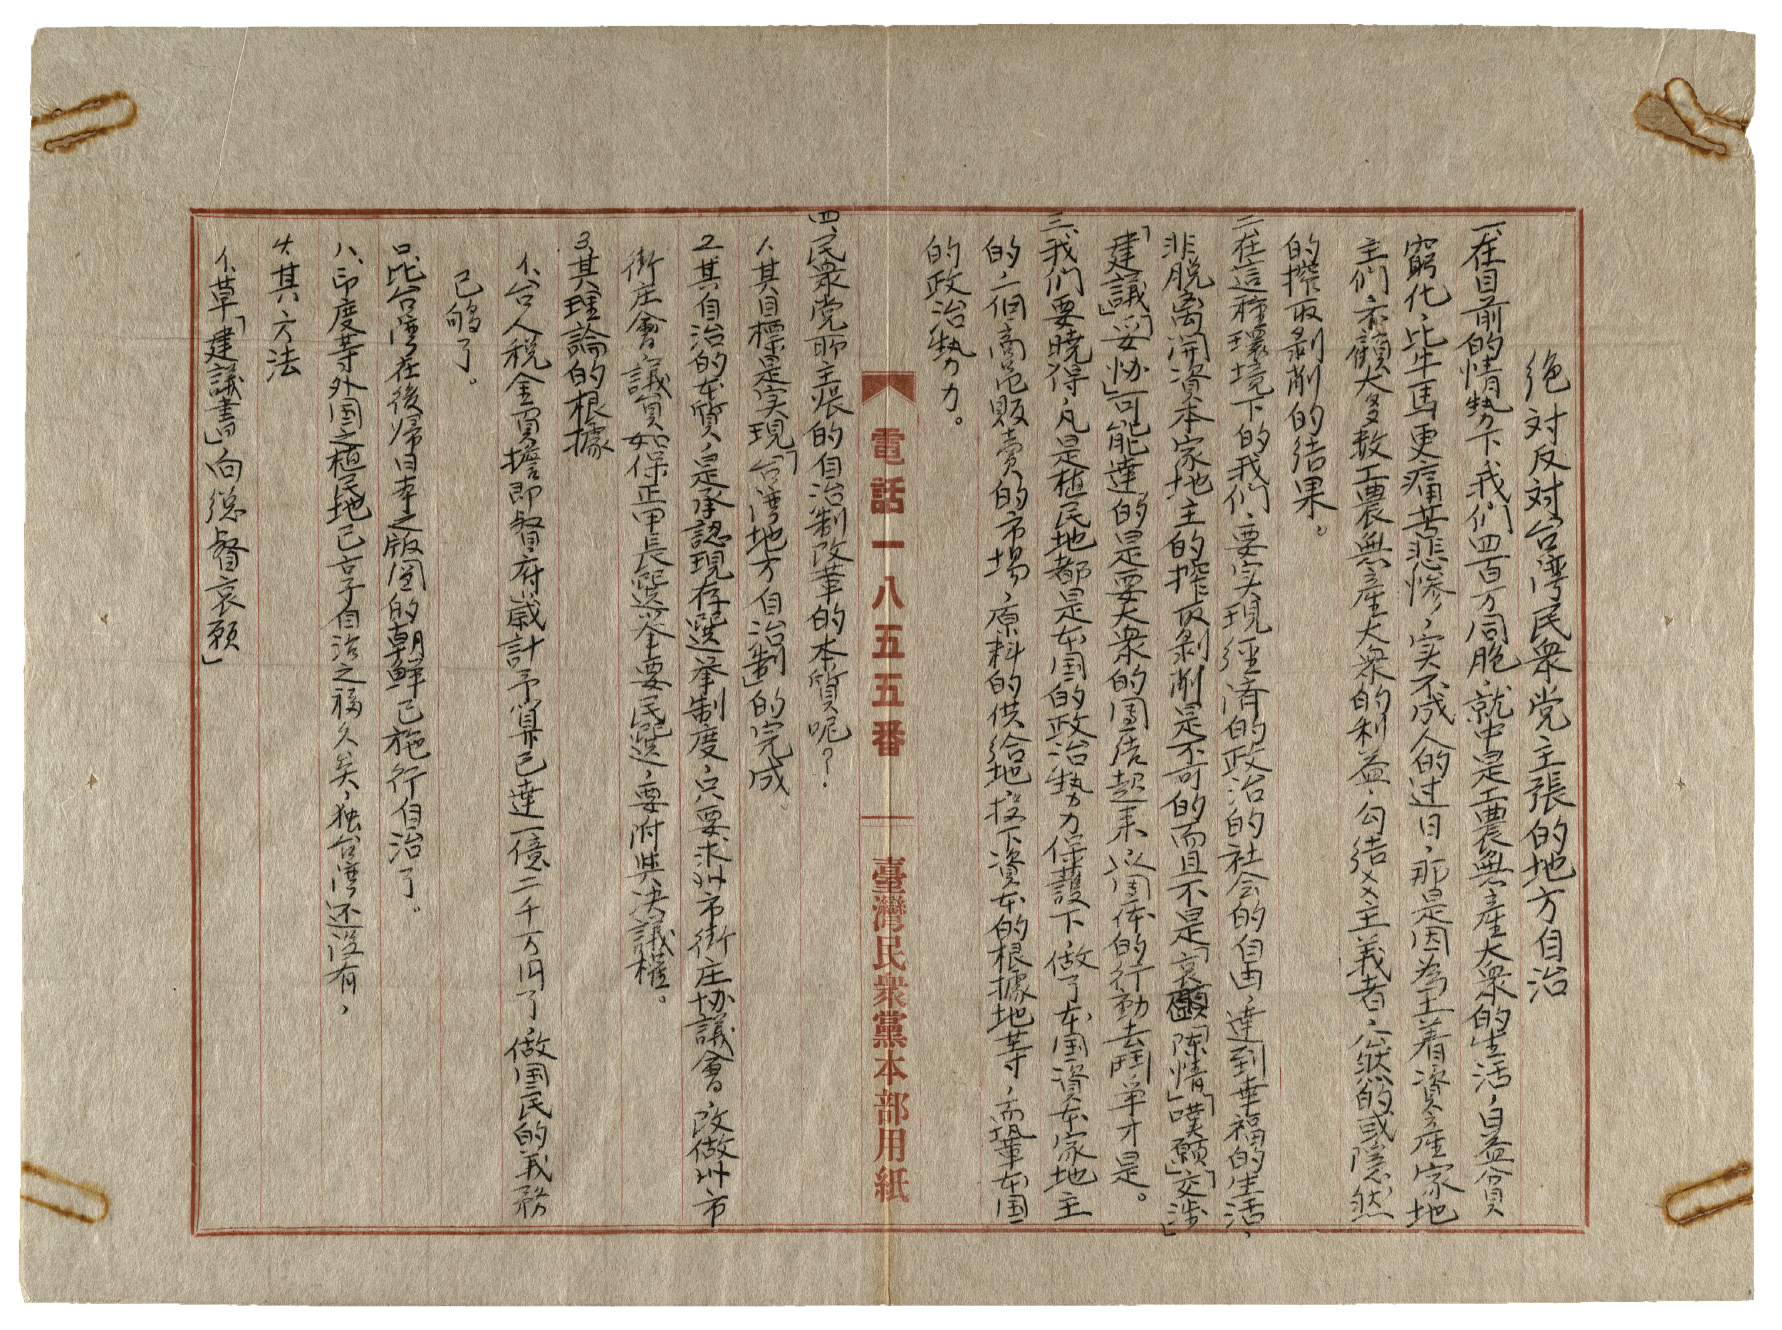 絶対反対台湾民衆党主張的地方自治
一、在目前的情勢下我们四百万同胞、就中是工農無產大衆的生活、日益貧
窮化、比牛馬更痛苦悲惨、实不成人的过日、那是因為土着資產家地
主们、不顧大多数工農無產大衆的利益、勾结××主義者、公然的或隱然
的搾取剥削的结果。
二、在這种環境下的我们、要实現経済的政治的社会的自由、達到幸福的生活、
非脱离開資本家地主的搾取剥削是不可的而且不是「哀願」「陳情」「嘆願」「交涉」
「建議」「妥协」可能達的是要大衆的团结起来以团体的行動去鬥争才是。
三、我们要曉得、凡是植民地都是本国的政治勢力保護下、做了本国資本家地主
的一個商品販賣的市場、原料的供給地投下資本的根據地等、而鞏本国
的政治勢力。
電話一八五五番 臺灣民衆黨本部用紙
四、民衆党所主張的自治制改革的本質呢？
1、其目標是实現「台湾地方自治制」的完成。
2、其自治的本質、是承認現存選举制度、只要求州市街庄协議會、改做州市
街庄會、議員如保正甲長選举全要民選、要附與决議權。
3、其理論的根據
イ、台人税金負擔即督府歲計予算已達一億二千万円了、做国民的義務
已够了。
ロ、比台湾在後帰日本之版图的朝鮮已施行自治了。
ハ、印度等外国之植民地已享自治之福久矣、独台湾还没有、
4、其方法
イ、草「建議書」向総督哀願」